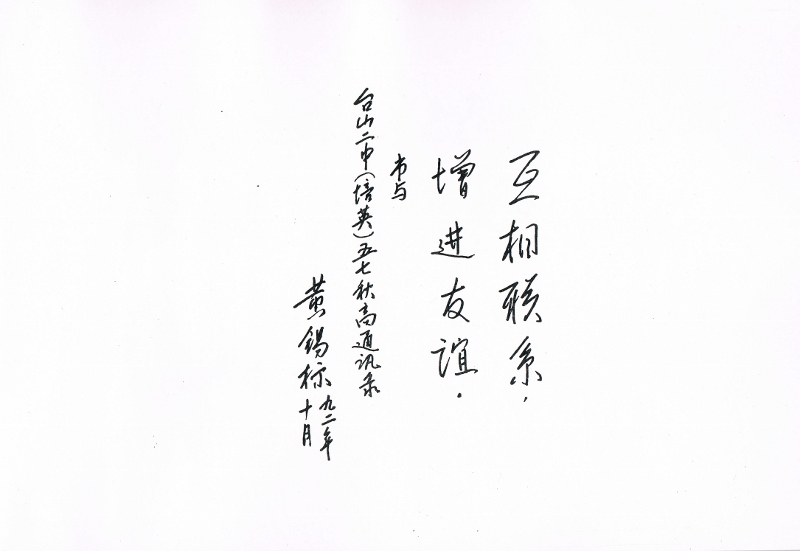 互相联系，
增进友谊．
书与
台山二中(培英)五七秋高通讯录
黄锡标
九二年
十月